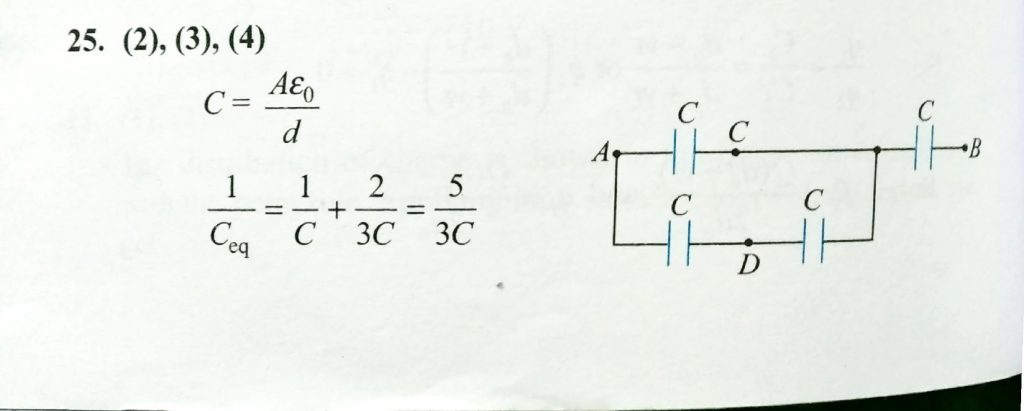 25. (2), (3), (4)
C = Aε₀/d
1/C_eq = 1/C + 2/3C = 5/3C
C
C
C
A
B
C
C
D